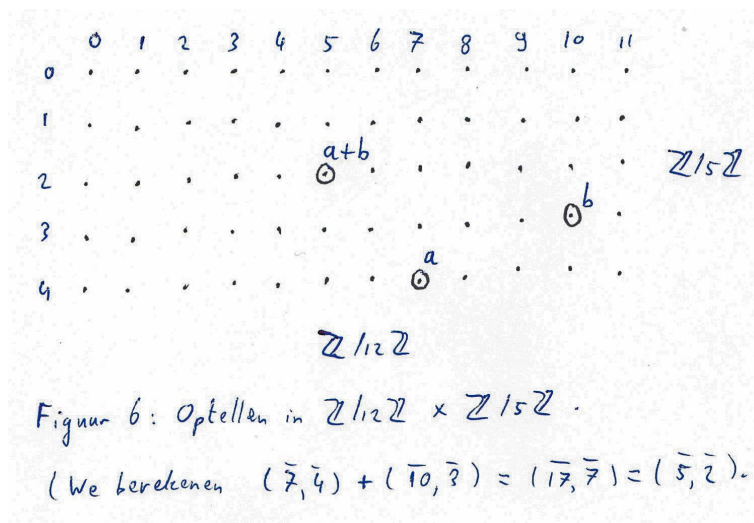 0 1 2 3 4 5 6 7 8 9 10 11
0
1
a+b
2 ℤ/5ℤ
b
3
a
4
ℤ/12ℤ
Figuur 6: Optellen in ℤ/12ℤ × ℤ/5ℤ.
(We berekenen (7̄,4̄) + (1̄0̄,3̄) = (1̄7̄,7̄) = (5̄,2̄).